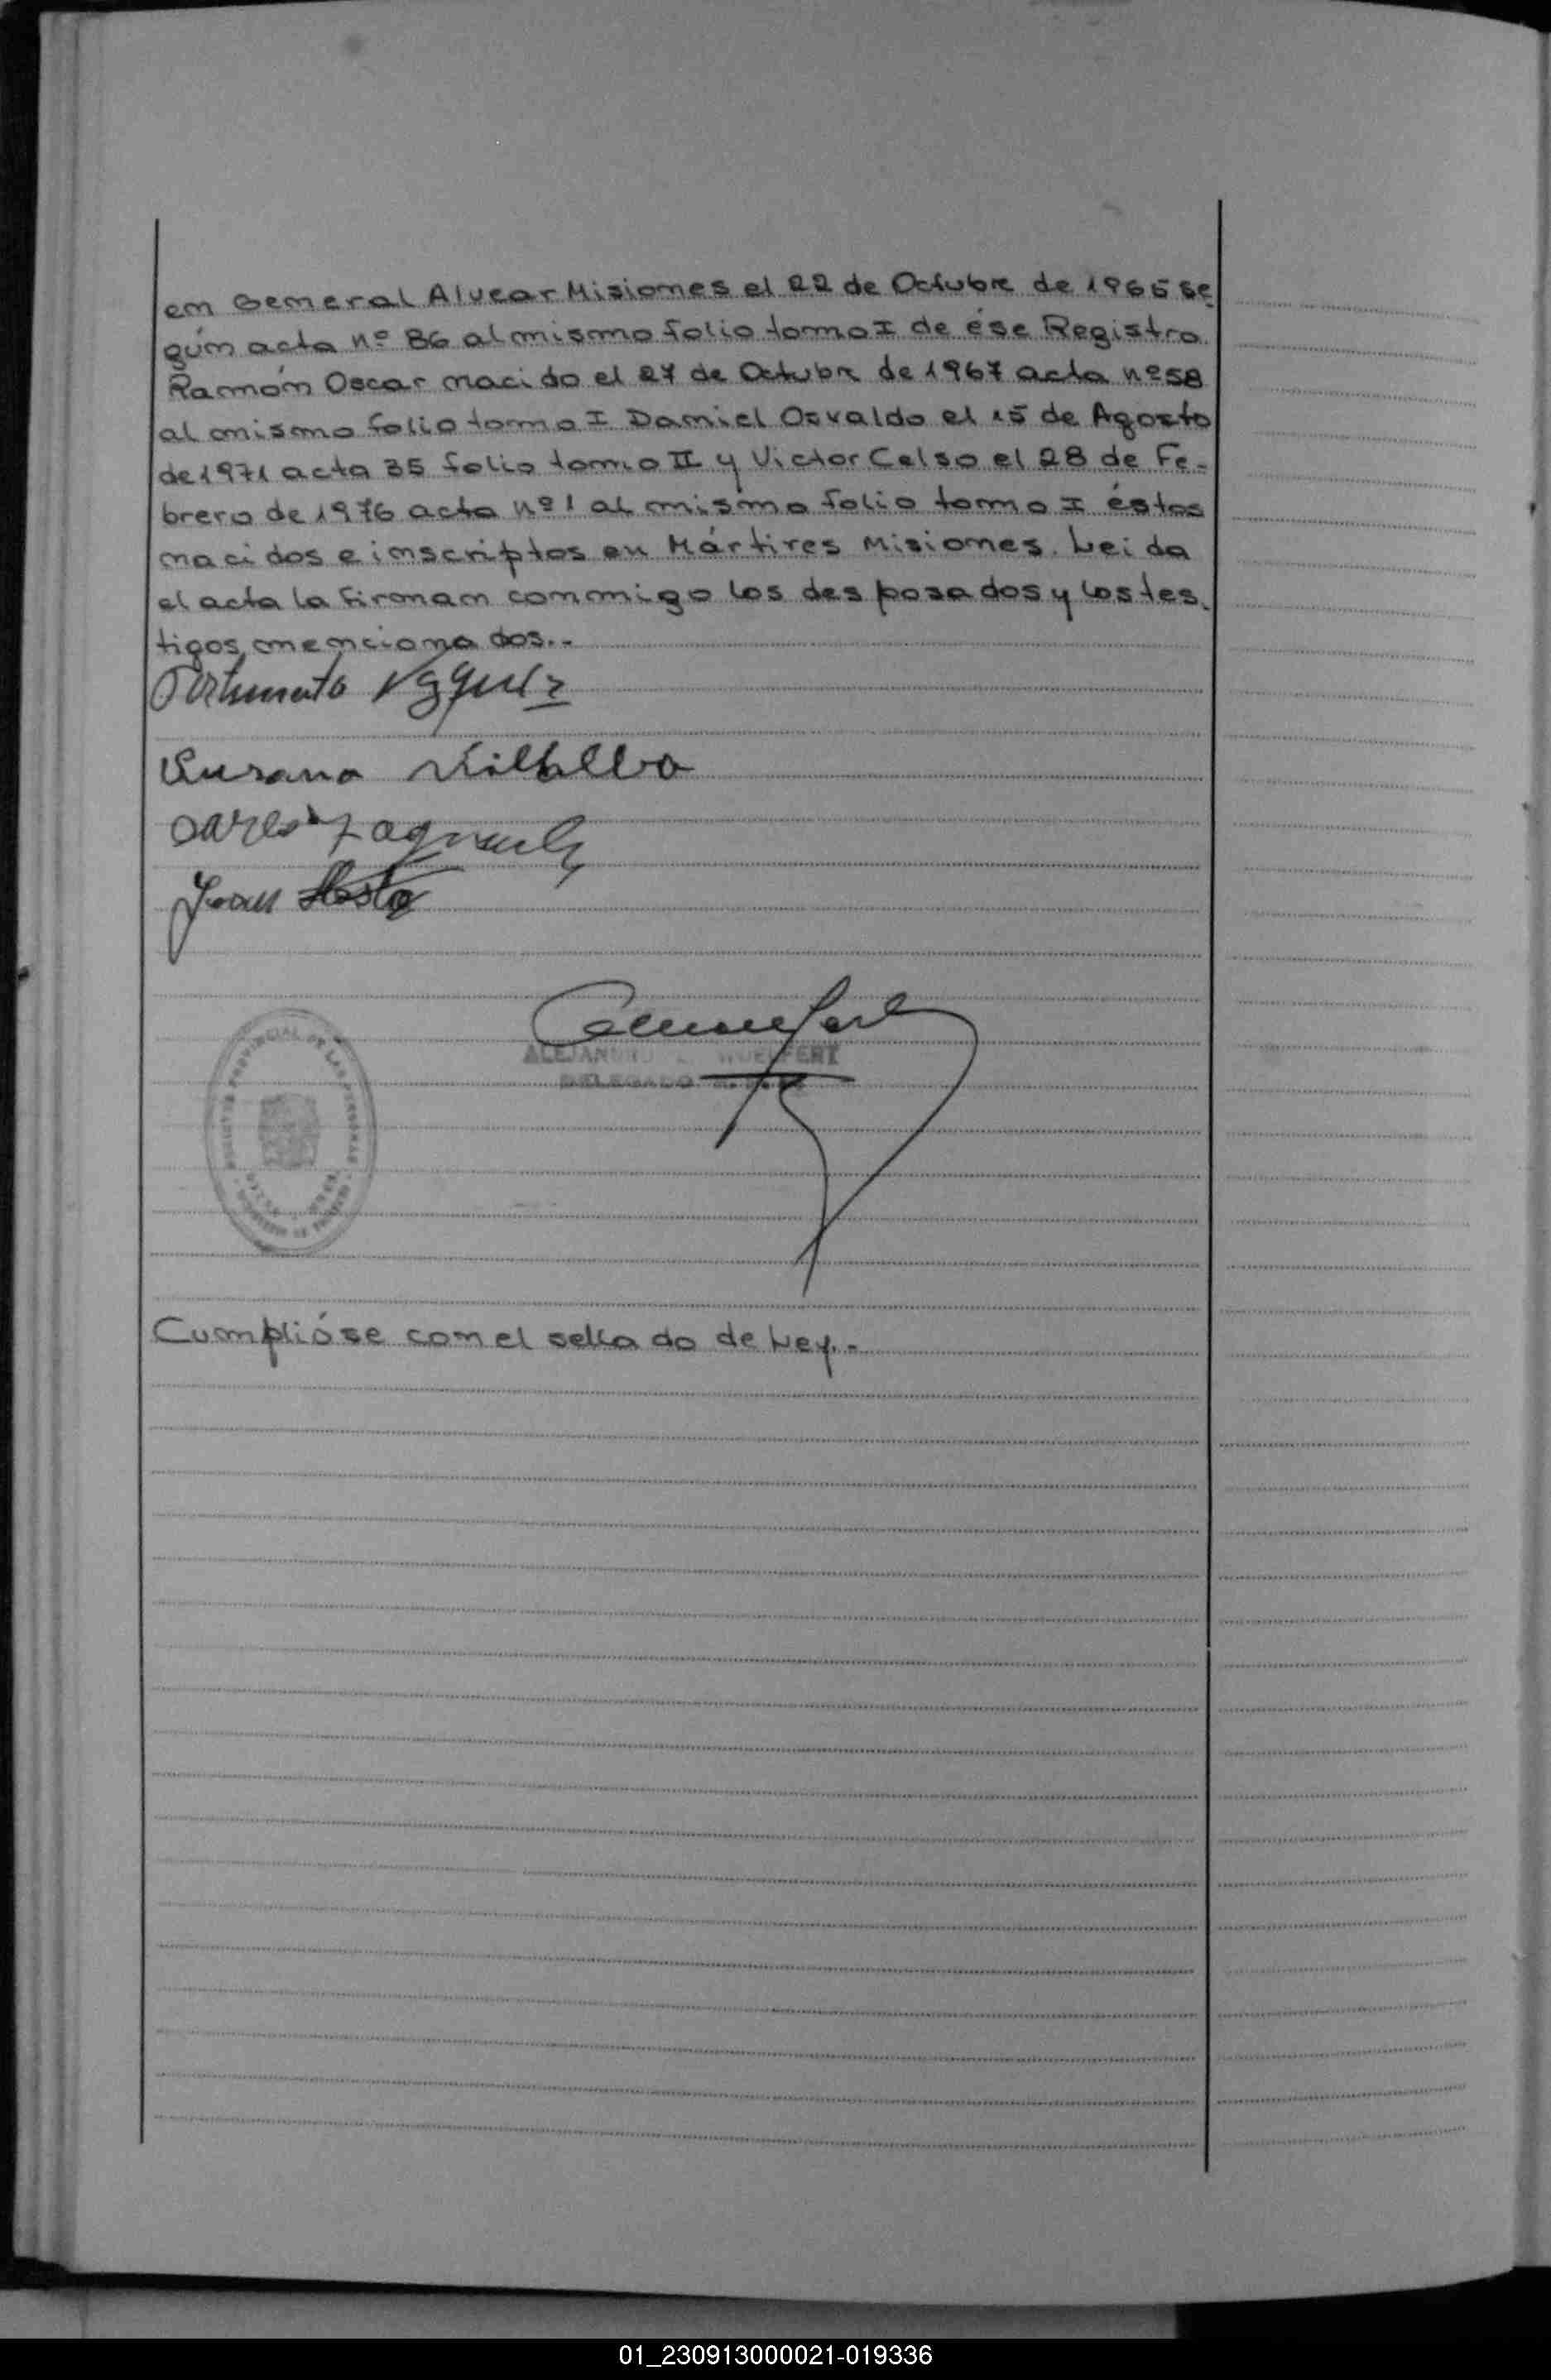 en General Alvear Misiones el 22 de Octubre de 1965 se
gún acta nº 86 al mismo folio tomo I de ése Registro.
Ramón Oscar nacido el 27 de Octubre de 1967 acta nº 58
al mismo folio tomo I Daniel Osvaldo el 15 de Agosto
de 1971 acta 35 folio tomo II y Victor Celso el 28 de Fe-
brero de 1976 acta nº 1 al mismo folio tomo I éstos
nacidos e inscriptos en Mártires Misiones. Leida
el acta la firman conmigo los desposados y los tes.
tigos mencionados.-
Fortunato
Susana Villalba
Juan
ALEJANDRO WOELFERT
DELEGADO
PROVINCIAL DE LAS PERSONAS
Cumplióse con el sellado de Ley.-
01_230913000021-019336